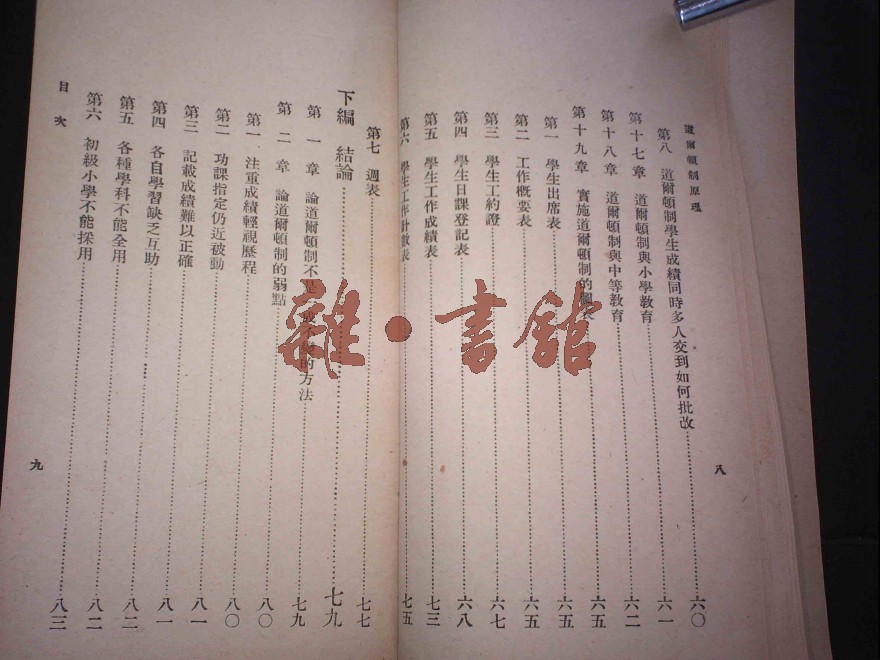 道爾頓制原理
第八 道爾頓制學生成績同時多人交到如何批改……六〇
第十七章 道爾頓制與小學教育……六一
第十八章 道爾頓制與中等教育……六二
第十九章 實施道爾頓制的圖表……六五
第一 學生出席表……六五
第二 工作概要表……六五
第三 學生工約證……六七
第四 學生日課登記表……六八
第五 學生工作成績表……七三
第六 學生工作計數表……七五
八
第七 週表……七七
下編 結論……七九
第一章 論道爾頓制不是 的方法……七九
第二章 論道爾頓制的弱點……
第一 注重成績輕視歷程……八〇
第二 功課指定仍近被動……八〇
第三 記載成績難以正確……八一
第四 各自學習缺乏互助……八一
第五 各種學科不能全用……八二
第六 初級小學不能採用……八二
八三
目次
九
雜·書館